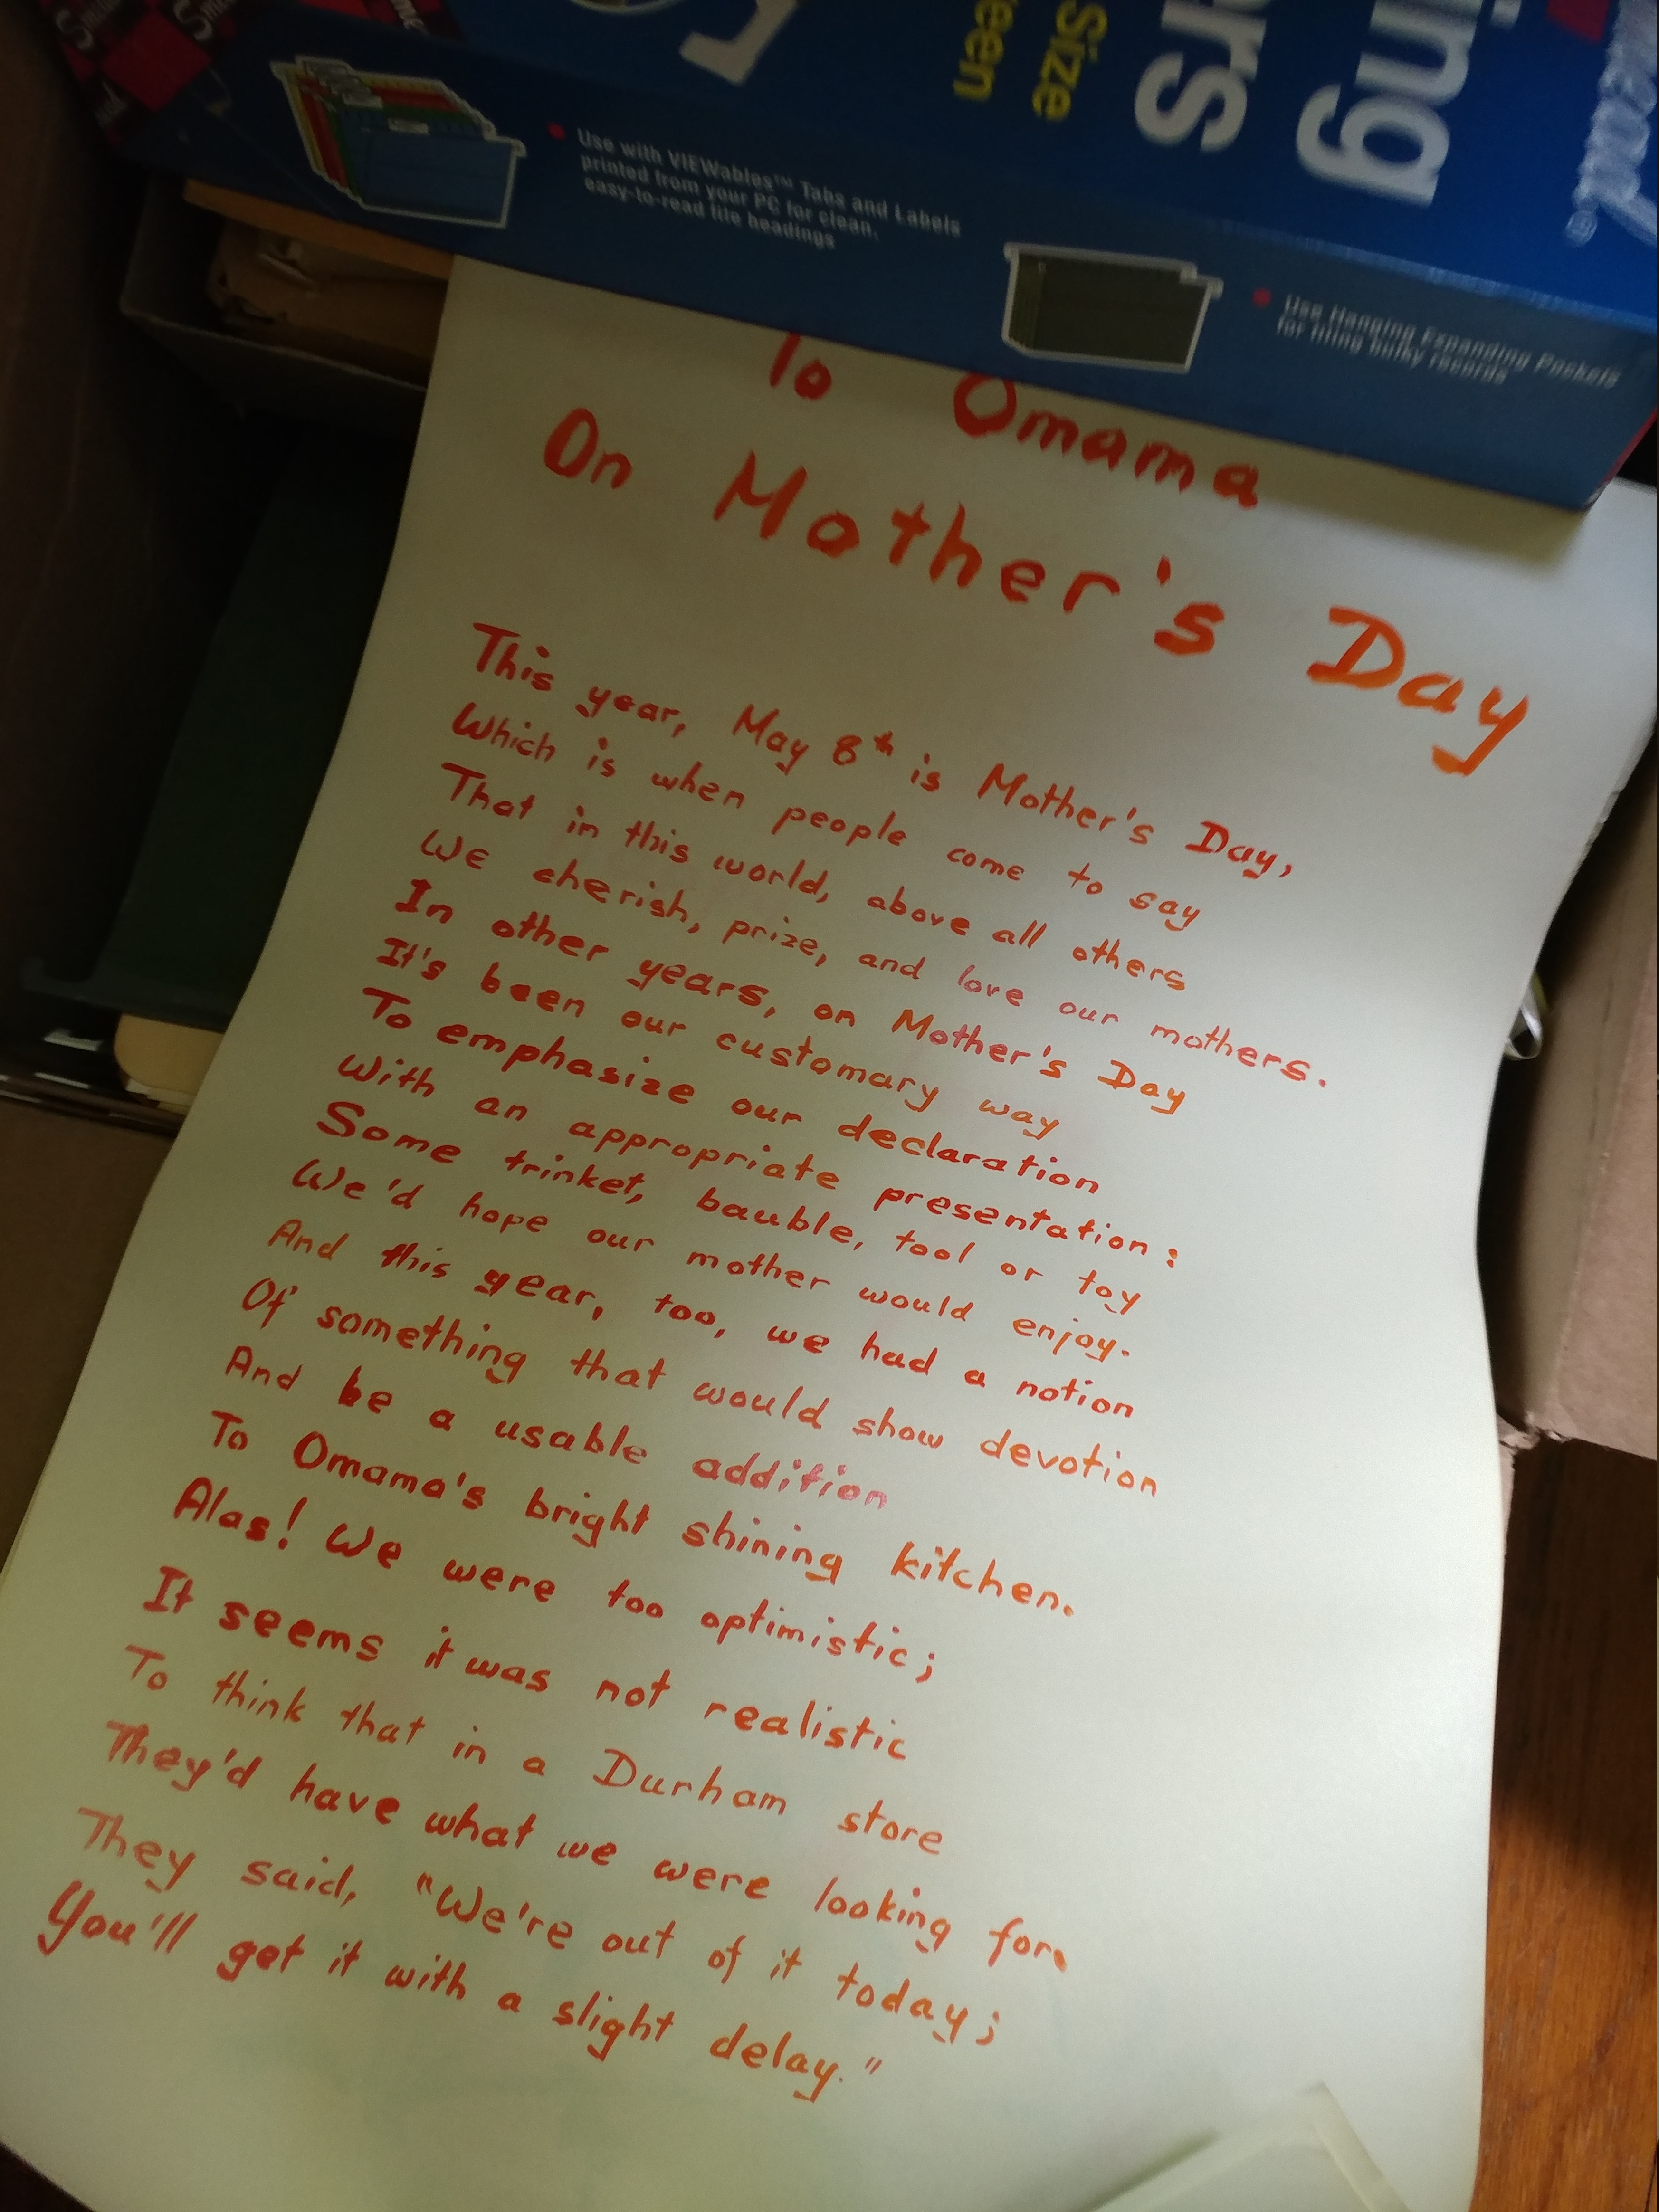 Size
een
ers
ing
®
Use with VIEWables™ Tabs and Labels
printed from your PC for clean,
easy-to-read file headings
Use Hanging Expanding Pockets
for filing bulky records
To Omama
On Mother's Day
This year, May 8th is Mother's Day,
Which is when people come to say
That in this world, above all others
We cherish, prize, and love our mothers.
In other years, on Mother's Day
It's been our customary way
To emphasize our declaration
With an appropriate presentation:
Some trinket, bauble, tool or toy
We'd hope our mother would enjoy.
And this year, too, we had a notion
Of something that would show devotion
And be a usable addition
To Omama's bright shining kitchen.
Alas! We were too optimistic;
It seems it was not realistic
To think that in a Durham store
They'd have what we were looking for.
They said, "We're out of it today;
You'll get it with a slight delay."